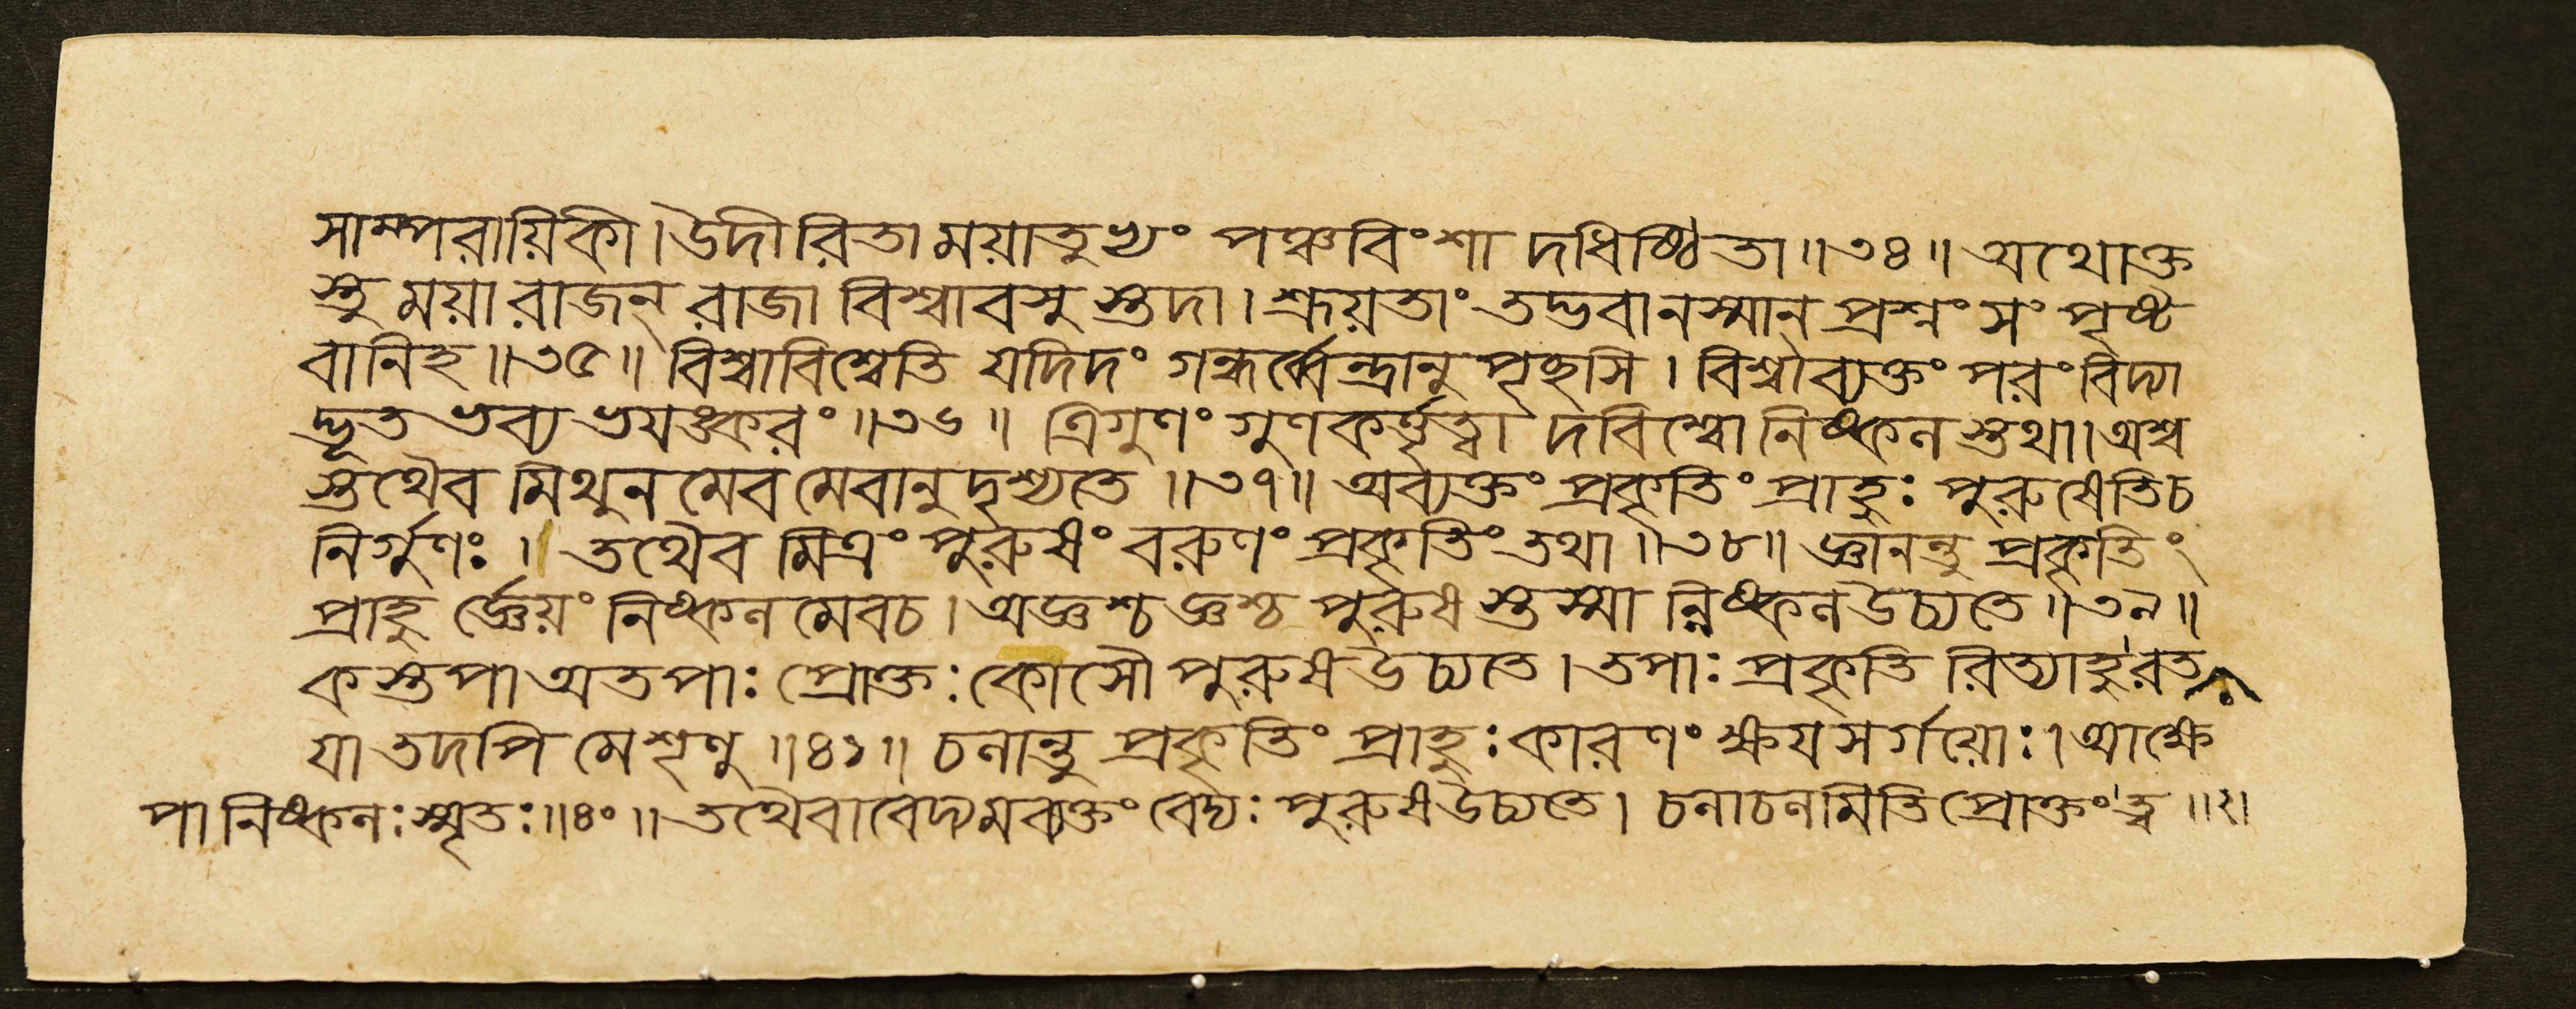 সাম্পরায়িকী। উদীরিতা ময়াতুভ্যং পঞ্চবিংশাদধিষ্ঠিতা॥৩৪॥ অথোক্ত
স্তু ময়া রাজন্ রাজা বিশ্বাবসুস্তদা। শ্রূয়তাং তদ্ভবানস্মান্ প্রশ্নং সংপৃষ্ট
বানিহ॥৩৫॥ বিশ্বাবিশ্বেতি যদিদং গন্ধর্ব্বেন্দ্রানুপৃচ্ছসি। বিশ্বাব্যক্তং পরং বিদ্যা
দ্ভূত ভব্য ভয়ঙ্করং॥৩৬॥ ত্রিগুণং গুণকর্ত্তৃত্বাদবিশ্বো নিষ্কলস্তথা। অশ্ব
স্তথৈব মিথুনমেবমেবানুদৃশ্যতে॥৩৭॥ অব্যক্তং প্রকৃতিং প্রাহুঃ পুরুষেতিচ
নির্গুণঃ। তথৈব মিত্রং পুরুষং বরুণং প্রকৃতিং তথা॥৩৮॥ জ্ঞানন্তু প্রকৃতিং
প্রাহুর্জ্ঞেয়ং নিষ্কলমেবচ। অজ্ঞশ্চ জ্ঞশ্চ পুরুষস্তস্মান্নিষ্কলউচ্যতে॥৩৯॥
কস্তপা অতপাঃ প্রোক্তঃ কোসৌ পুরুষউচ্যতে। তপাঃ প্রকৃতিরিত্যাহুরত
যা তদপি মেশৃণু॥৪১॥ চলান্তু প্রকৃতিং প্রাহুঃ কারণং ক্ষয়সর্গয়োঃ। আক্ষে
পা নিষ্কলঃ স্মৃতঃ॥৪০॥ তথৈবাবেদ্যমব্যক্তং বেদ্যঃ পুরুষউচ্যতে। চলাচলমিতিপ্রোক্তং ত্ব॥২॥